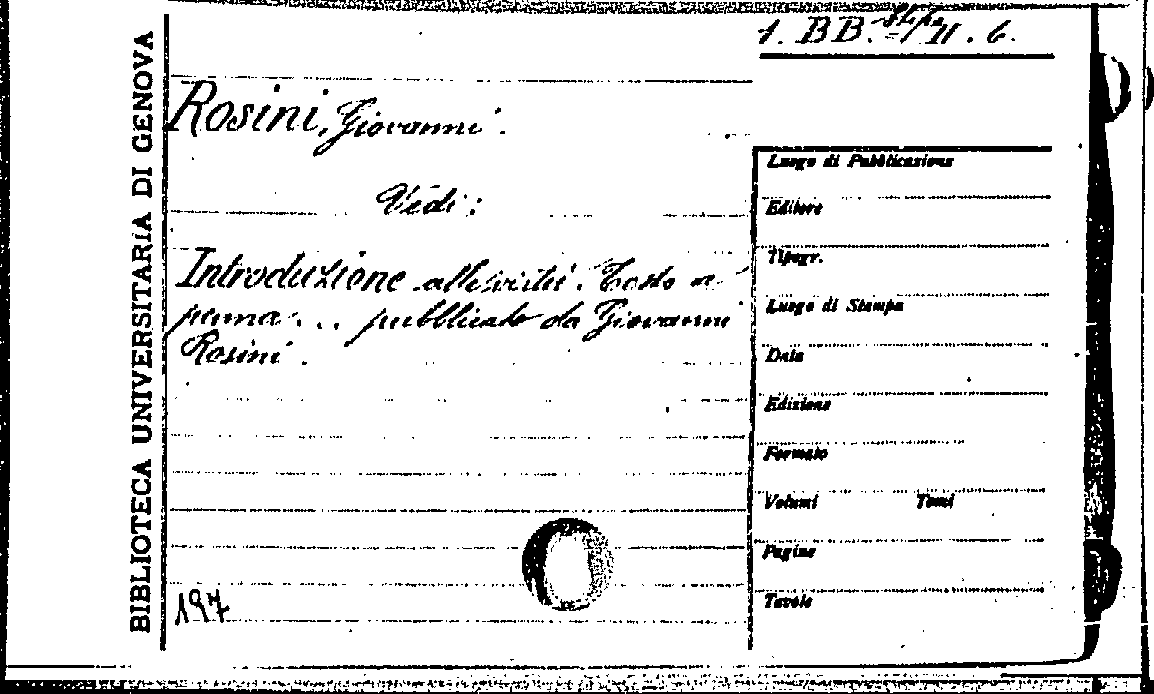 BIBLIOTECA UNIVERSITARIA DI GENOVA
1. BB. II. 6.
Rosini, Giovanni.
Vedi:
Introduzione alle virtù. Testo a
penna... pubblicato da Giovanni
Rosini.
197
Luogo di Pubblicazione
Editore
Tipogr.
Luogo di Stampa
Data
Edizione
Formato
Volumi Tomi
Pagine
Tavole